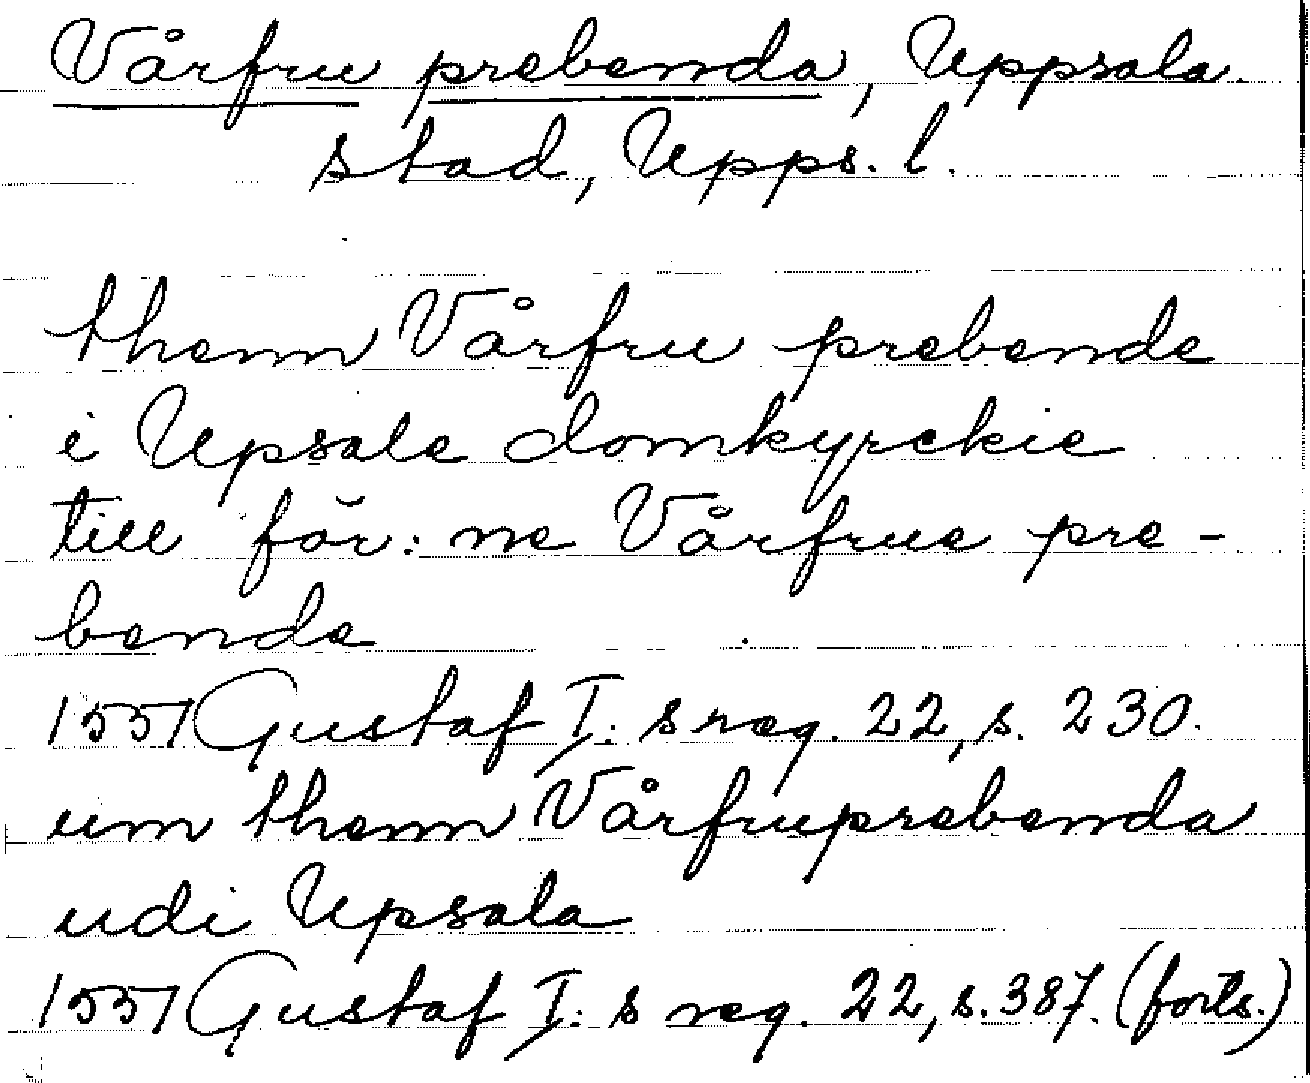 Vårfru prebenda, Uppsala
stad, Upps. l.
thenn Vårfru prebende
i Upsale domkyrckie
till för: ne Vårfrue pre-
bende
1551 Gustaf I: s reg. 22, s. 230.
um thenn Vårfruprebenda
udi Upsala
1551 Gustaf I: s reg. 22, s. 387. (forts.)